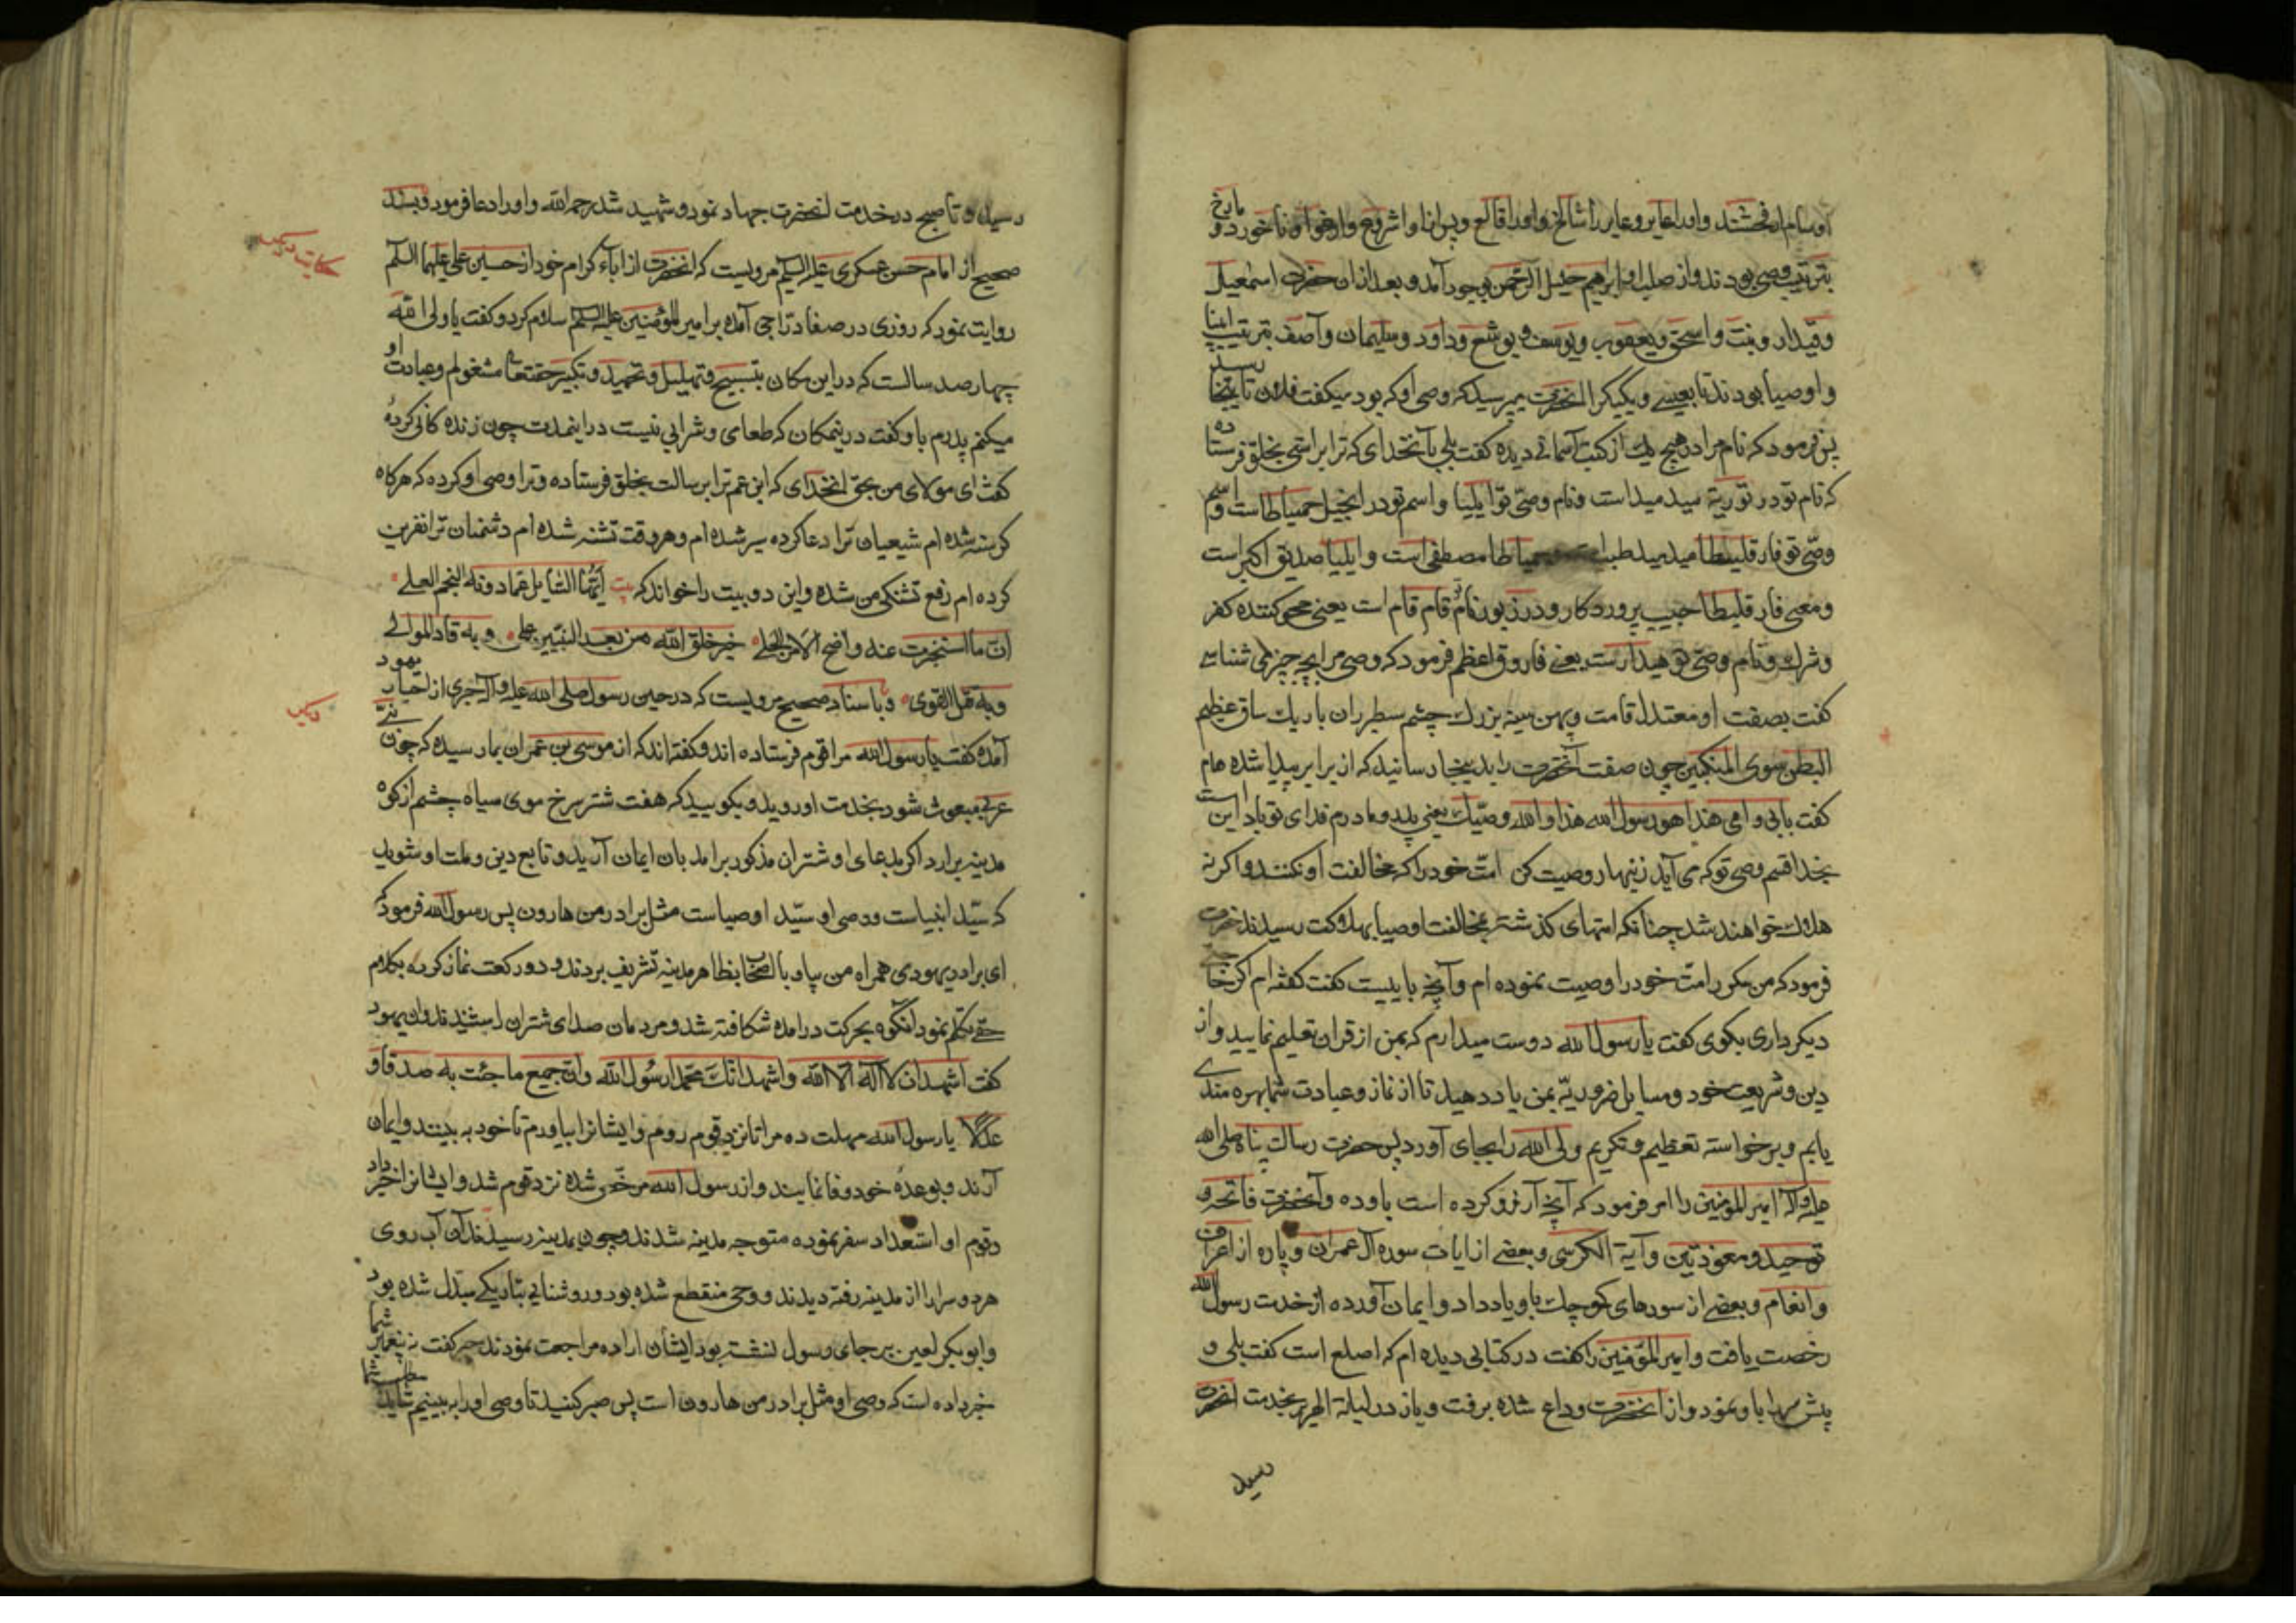 او سام ارفحشد و او را عابر و عابر را شالخ و او را قالع و پس از او اشروع و ارغوا و ناخور و
بترتیب وصی بودند و از صلب او ابراهیم خلیل الرحمن بوجود آمد و بعد از ان حضرت اسمعیل
و قیدار و نبت و اسحق و یعقوب و یوسف و یوشع و داود و سلیمان و آصف بترتیب انبیا
و اوصیا بودند تا بعیسی و یکیک را آنحضرت میپرسید که وصی او که بود میکفت فلان تا باینجا رسید
پس فرمود که نام مرا در هیچ یک از کتب آسمانی دیده کفت بلی بآنخدای که ترا براستی بخلق فرستاده
که نام تو در توریة میدمید است و نام وصی تو ایلیا و اسم تو در انجیل حمیاطا است و اسم
وصی تو فار قلیطا میدمید طیب است و حمیاطا مصطفی است و ایلیا صدیق اکبر است
و معنی فار قلیطا حبیب پروردکار و در زبور نام تو قام قام است یعنی محو کننده کفر
و شرک و نام وصی تو هیدار است یعنی فاروق اعظم فرمود که وصی مرا بچه چیز می شناسی
کفت بصفت او معتدل قامت و پهن سینه بزرک چشم سطبر ران باریک ساق عظیم
البطن سوی المنکبین چون صفت آنحضرت را بدینجا رسانید که از برابر پیدا شده هام
کفت بابی و امی هذا هو رسول الله هذا و الله وصیک یعنی پدر و مادرم فدای تو باد این است
بخدا قسم وصی تو که می آید زینهار وصیت کن امت خود را که مخالفت او نکنند و اکر نه
هلاک خواهند شد چنانکه امتهای کذشته بمخالفت اوصیا بهلاکت رسیدند حضرت
فرمود که من مکرر امت خود را وصیت نموده ام و آنچه بایست کفت کفته ام اکر حاجتی
دیکر داری بکوی کفت یا رسول الله دوست میدارم که بمن از قران تعلیم نمایید و از
دین و شریعت خود و مسایل ضروریه بمن یاد دهید تا از نماز و عبادت شما بهره مندی
یابم و برخواسته تعظیم و تکریم ولی الله را بجای آورد پس حضرت رسالت پناه صلی الله
علیه و آله امیر المؤمنین را امر فرمود که آنچه آرزو کرده است باو ده و آنحضرت فاتحه و
توحید و معوذتین و آیة الکرسی و بعضی از ایات سوره آل عمران و پاره از اعراف
و انعام و بعضی از سورهای کوچک باو یاد داد و ایمان آورده از خدمت رسول الله
رخصت یافت و امیر المؤمنین را کفت در کتابی دیده ام که اصلع است کفت بلی و
پیش سر را باو نمود و از آنحضرت وداع شده برفت و باز در لیلة الهریر بخدمت آنحضرت
رسید
رسید و تا صبح در خدمت آنحضرت جهاد نمود و شهید شد رحمه الله و او را دعا فرمود و بسند
صحیح از امام حسن عسکری علیه السلم مرویست که آنحضرت از اباء کرام خود از حسین علی علیهما السلم
حکایت دیکر
روایت نمود که روزی در صفا دراجی آمده بر امیر المؤمنین علیه السلم سلام کرد و کفت یا ولی الله
چهار صد سالست که در این مکان بتسبیح و تهلیل و تحمید و تکبیر حقتعالی مشغولم و عبادت او
میکنم پدرم باو کفت درینمکان که طعامی و شرابی نیست در اینمدت چون زنده کانی کرده
کفت ای مولای من بحق آنخدای که ابن عم ترا برسالت بخلق فرستاده و ترا وصی او کرده که هرکاه
کرسنه شده ام شیعیان ترا دعا کرده سیر شده ام و هر وقت تشنه شده ام دشمنان ترا نفرین
کرده ام رفع تشنکی من شده و این دو بیت را خواند که بیت ایها السایل عما دونه النجم العلی
ان ما استخبرت عنه واضح الامر الجلی خیر خلق الله من بعد النبیین علی و به قاد الموالی
و به قل القوی و باسناد صحیح مرویست که در حین رسول صلی الله علیه و آله حبری از احبار یهود
دیکر
آمده کفت یا رسول الله مرا قوم فرستاده اند و کفته اند که از موسی بن عمران بما رسیده که چون نبی
عربی مبعوث شود بخدمت او روید و بکویید که هفت شتر سرخ موی سیاه چشم از کوه
مدینه برارد اکر بدعای او شتران مذکور برامد بان ایمان آرید و تابع دین و ملت او شوید
که سید انبیاست و وصی او سید اوصیاست مثل برادر من هارون پس رسول الله فرمود که
ای برادر یهودی همراه من بیا و با اصحاب بظاهر مدینه تشریف بردند و دو رکعت نماز کرده بکلام
حق تکلم نمود آنکوه بحرکت درامده شکافته شد و مردمان صدای شتران را شنیدند و ان یهود
کفت اشهد ان لا اله الا الله و اشهد انک محمدا رسول الله و ان جمیع ما جئت به صدقا و
عدلا یا رسول الله مهلت ده مرا تا نزد قوم روم و ایشانرا بیاورم تا خود به بینند و ایمان
آرند و بوعده خود وفا نمایند و از رسول الله مرخص شده نزد قوم شد و ایشانرا خبر داد
و قوم او استعداد سفر نموده متوجه مدینه شدند و چون بمدینه رسیدند آن آب روی
هر دو سرا را از مدینه رفته دیدند و وحی منقطع شده بود و روشنایی بتاریکی مبدل شده بود
و ابو بکر لعین بر جای رسول نشسته بود ایشان اراده مراجعت نمودند حبر کفت نه پیغمبر شما
خبر داده است که وصی او مثل برادر من هارون است پس صبر کنید تا وصی او را به بینیم شاید